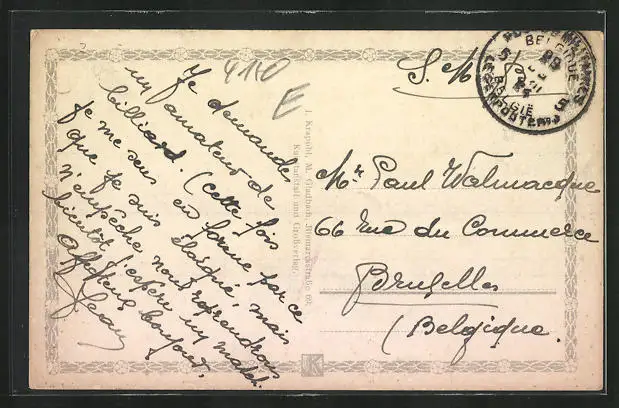 4110
E
Je demandes
un amateur de
billiard. (Cette fois
je me sens en forme par ce
que je suis élargue mais
n'empêche nous reprendrons
bientôt j'espère un match.
Affectueux bonjour,
Jean
J. Krapohl, M. Gladbach, Bismarckstraße 69.
Kunstanstalt und Großverlag.
S. M
BELGIQUE
BELGIË
LEGERPOSTERIJ
Mr Paul Walmacque
66 rue du Commerce
Bruxelles
(Belgique.
K